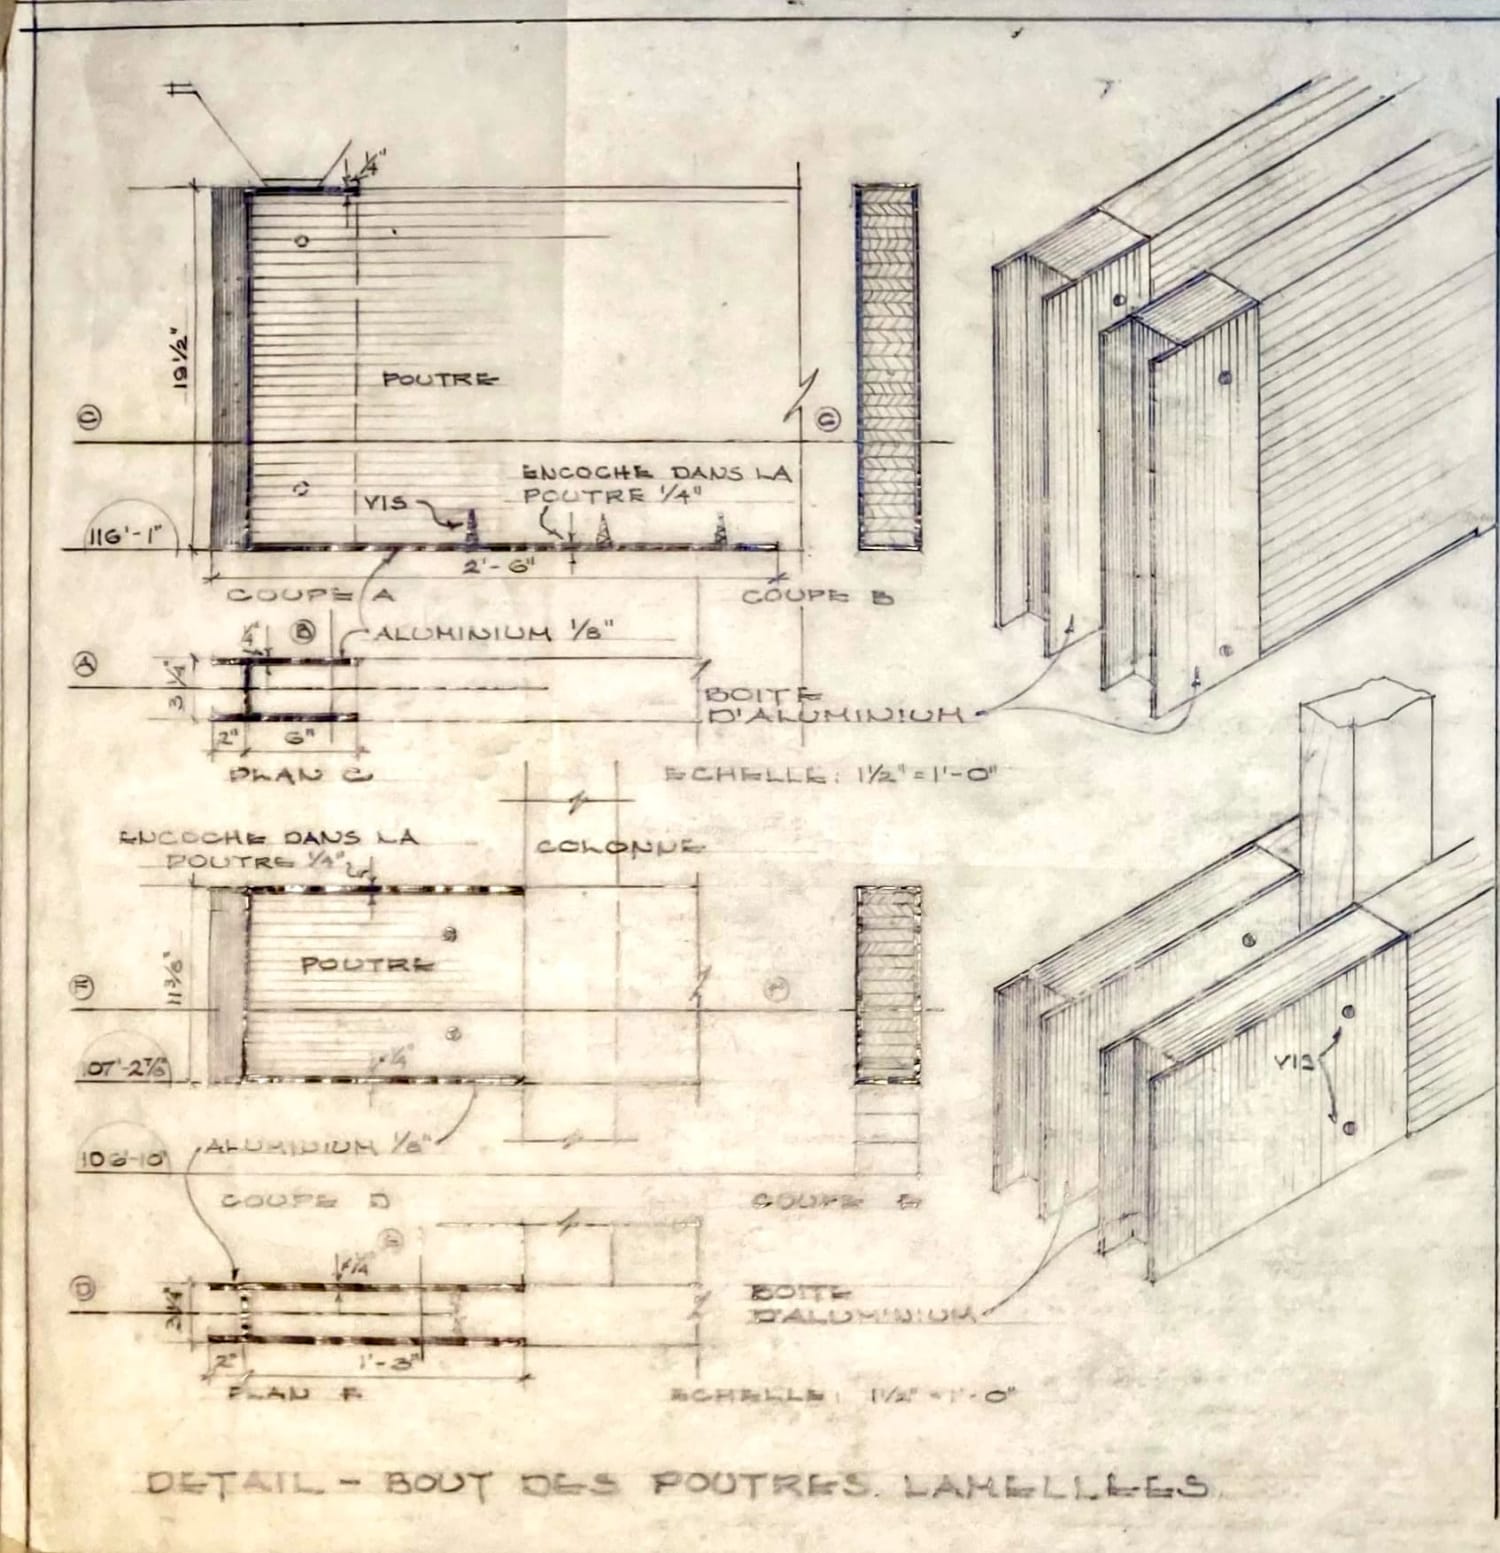 1/4"
19 1/2"
POUTRE
C
C
ENCOCHE DANS LA
POUTRE 1/4"
VIS
116'-1"
2'-6"
COUPE A
COUPE B
1/4"
B
ALUMINIUM 1/8"
A
3 1/4"
BOITE
D'ALUMINIUM
2"
6"
PLAN C
ECHELLE: 1 1/2" = 1'-0"
ENCOCHE DANS LA
POUTRE 1/4"
COLONNE
POUTRE
11 3/8"
F
F
VIS
107'-2 7/8"
1/4"
106'-10"
ALUMINIUM 1/8"
COUPE D
COUPE E
E
1/4"
D
3 1/4"
BOITE
D'ALUMINIUM
2"
1'-3"
PLAN F
ECHELLE: 1 1/2" = 1'-0"
DETAIL - BOUT DES POUTRES LAMELLEES